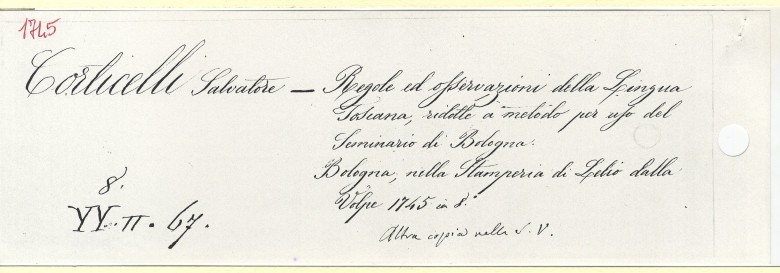 1745
Corticelli Salvatore — Regole ed osservazioni della Lingua
Toscana, ridotte a metodo per uso del
Seminario di Bologna.
Bologna, nella Stamperia di Lelio dalla
Volpe 1745 in 8.°
8.
YY. II. 67.
Altra copia nella S. V.